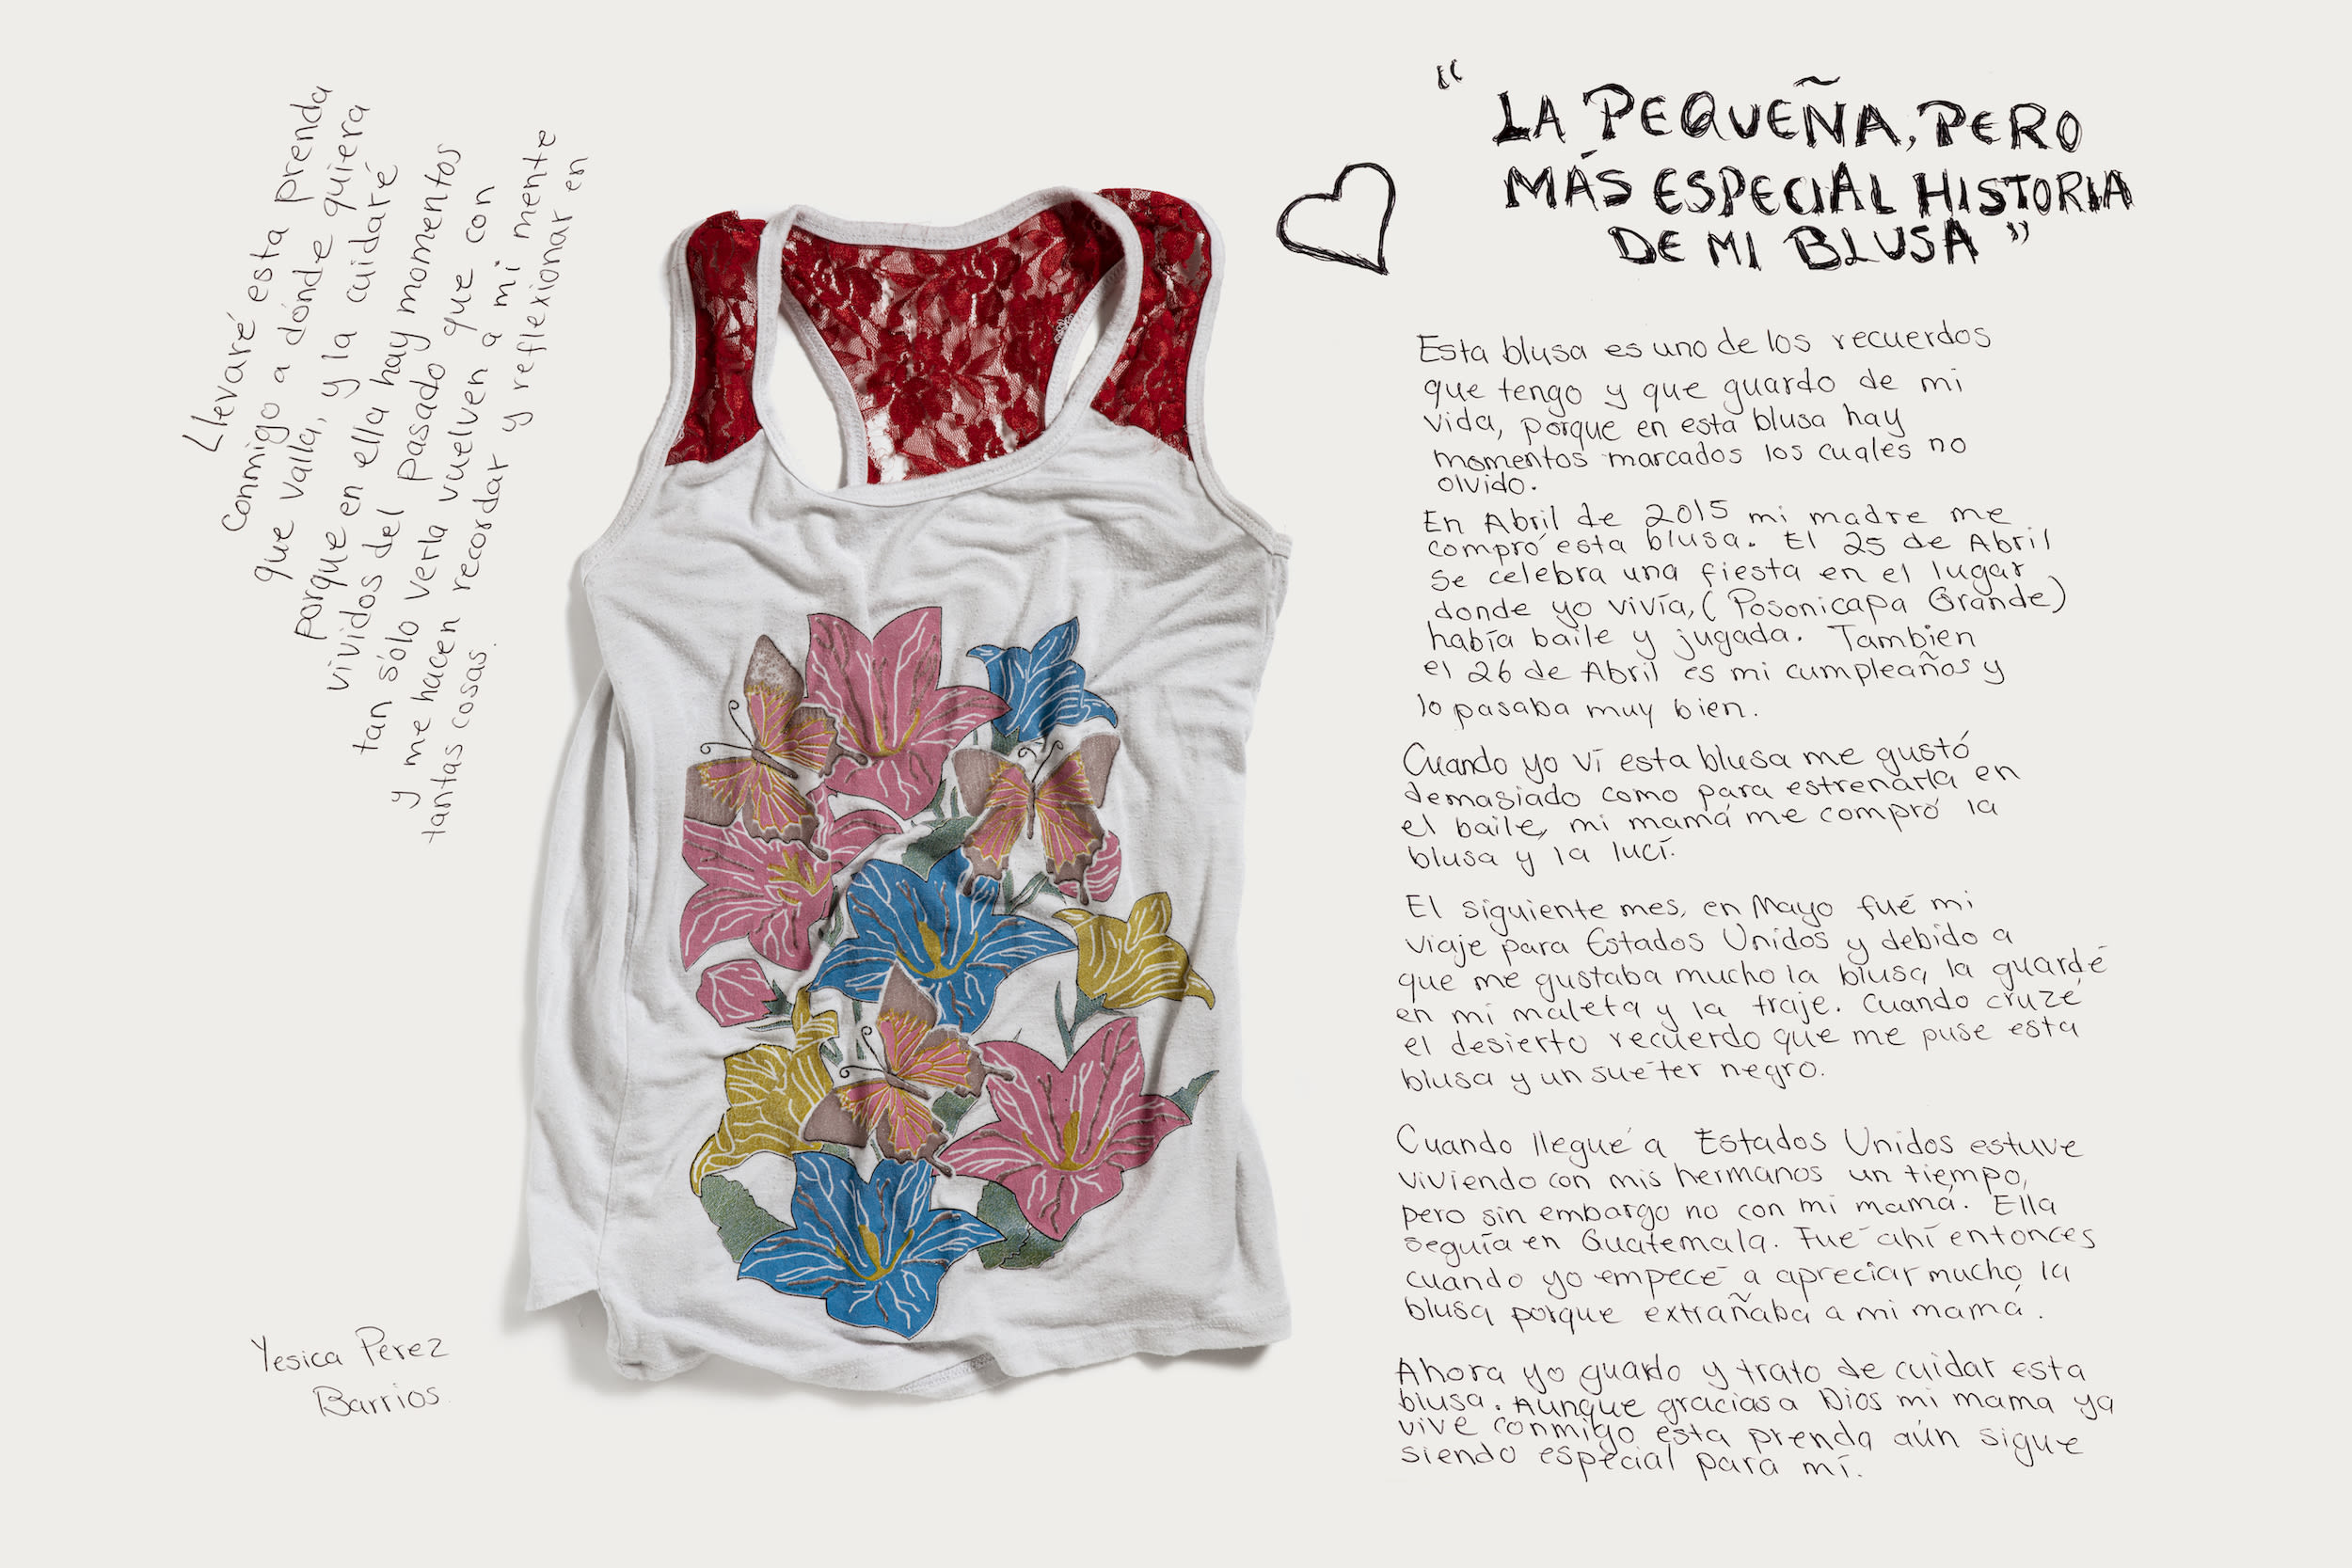 “LA PEQUEÑA, PERO
MÁS ESPECIAL HISTORIA
DE MI BLUSA”
Esta blusa es uno de los recuerdos
que tengo y que guardo de mi
vida, porque en esta blusa hay
momentos marcados los cuales no
olvido.
En Abril de 2015 mi madre me
compró esta blusa. El 25 de Abril
se celebra una fiesta en el lugar
donde yo vivía, (Posonicapa Grande)
había baile y jugada. Tambien
el 26 de Abril es mi cumpleaños y
lo pasaba muy bien.
Cuando yo ví esta blusa me gustó
demasiado como para estrenarla en
el baile, mi mamá me compró la
blusa y la lucí.
El siguiente mes, en Mayo fué mi
viaje para Estados Unidos y debido a
que me gustaba mucho la blusa, la guardé
en mi maleta y la traje. Cuando cruzé
el desierto recuerdo que me puse esta
blusa y un sueter negro.
Cuando llegué a Estados Unidos estuve
viviendo con mis hermanos un tiempo,
pero sin embargo no con mi mamá. Ella
seguía en Guatemala. Fué ahí entonces
cuando yo empecé a apreciar mucho la
blusa porque extrañaba a mi mamá.
Ahora yo guardo y trato de cuidar esta
blusa. Aunque gracias a Dios mi mama ya
vive conmigo esta prenda aún sigue
siendo especial para mí.
Llevaré esta prenda
conmigo a dónde quiera
que valla, y la cuidaré
porque en ella hay momentos
vividos del pasado que con
tan sólo verla vuelven a mi mente
y me hacen recordar y reflexionar en
tantas cosas.
Yesica Pérez
Barrios